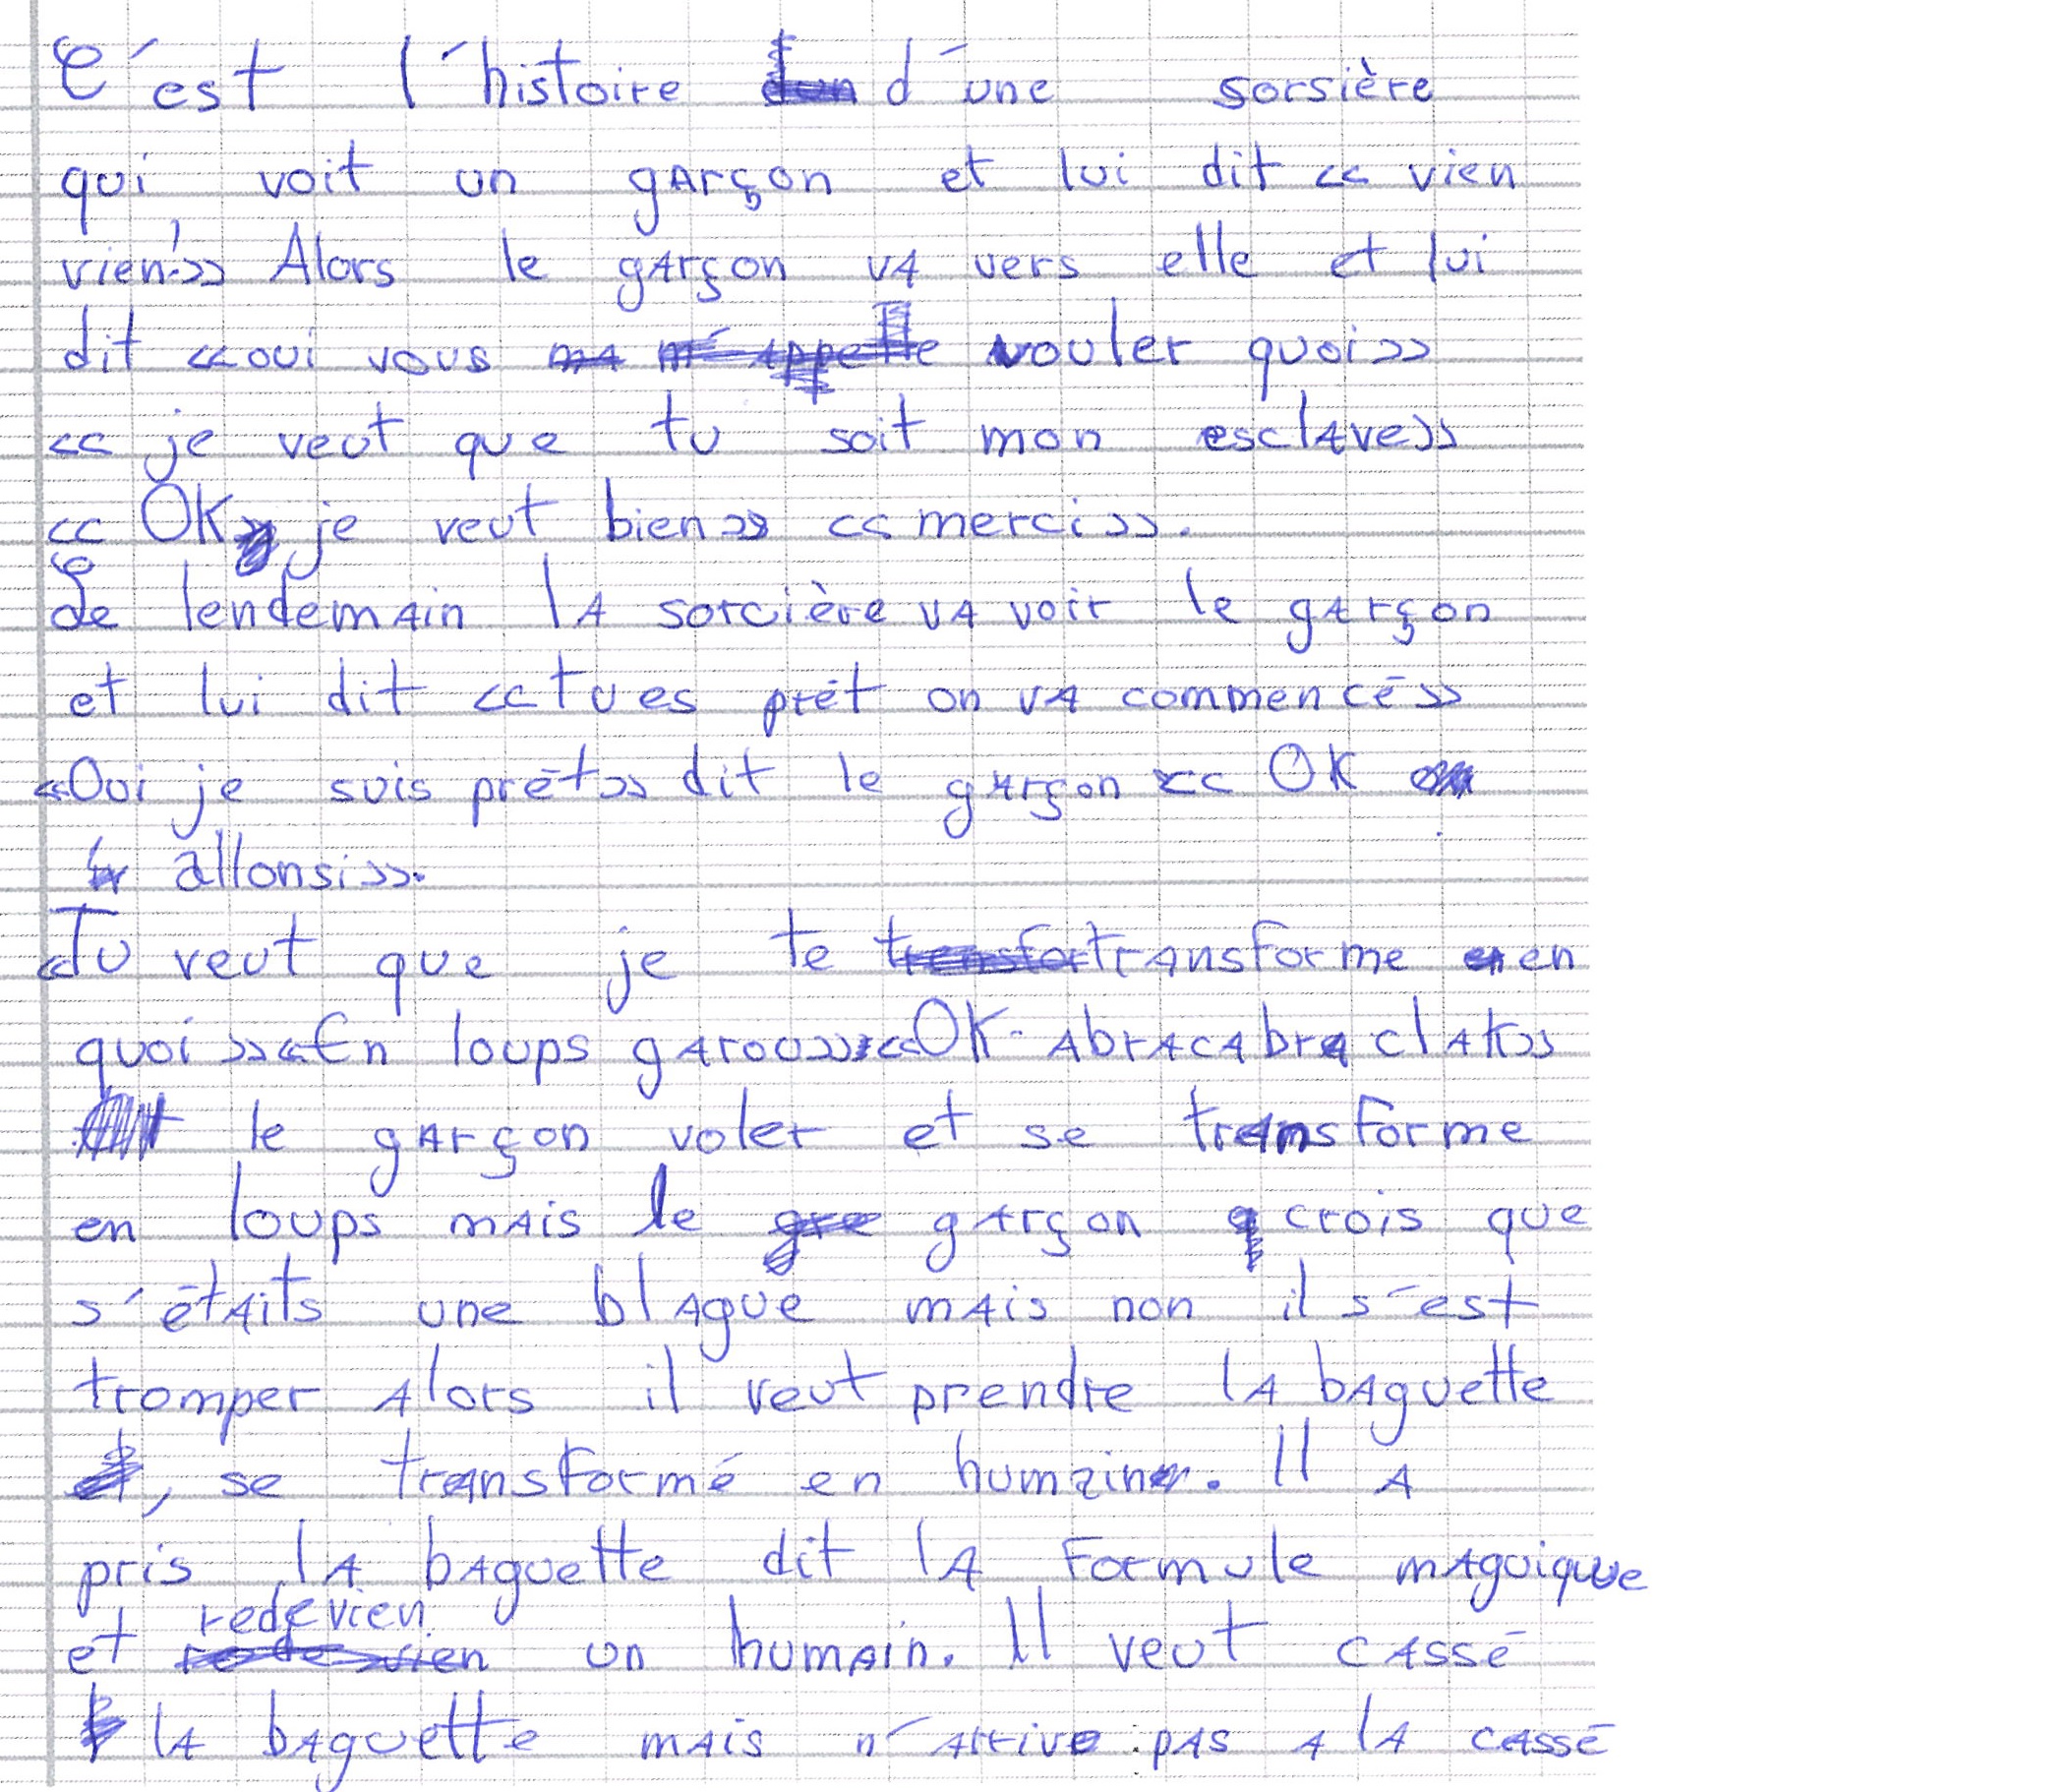 C'est l'histoire d'une sorsière
qui voit un garçon et lui dit << vien
vien!>> Alors le garçon va vers elle et lui
dit <<oui vous vouler quoi>>
<< je veut que tu soit mon esclave>>
<< OK je veut bien>> << merci>>.
Le lendemain la sorcière va voir le garçon
et lui dit <<tu es prêt on va commencé>>
<<Oui je suis prêt>> dit le garçon << OK
allonsi>>.
<<Tu veut que je te transforme en
quoi >><<En loups garou>><<OK. abracabra clak>>
le garçon voler et se transforme
en loups mais le garçon crois que
s'étaits une blague mais non il s'est
tromper alors il veut prendre la baguette
, se transformé en humain. Il a
pris la baguette dit la formule maguique
et redevien un humain. Il veut cassé
la baguette mais n'arrive pas a la cassé